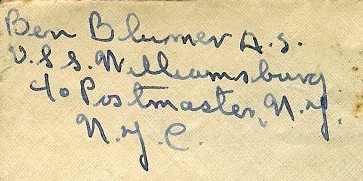 Ben Blumer A.S.
U.S.S. Williamsburg
c/o Postmaster, N.Y.
N.Y.C.